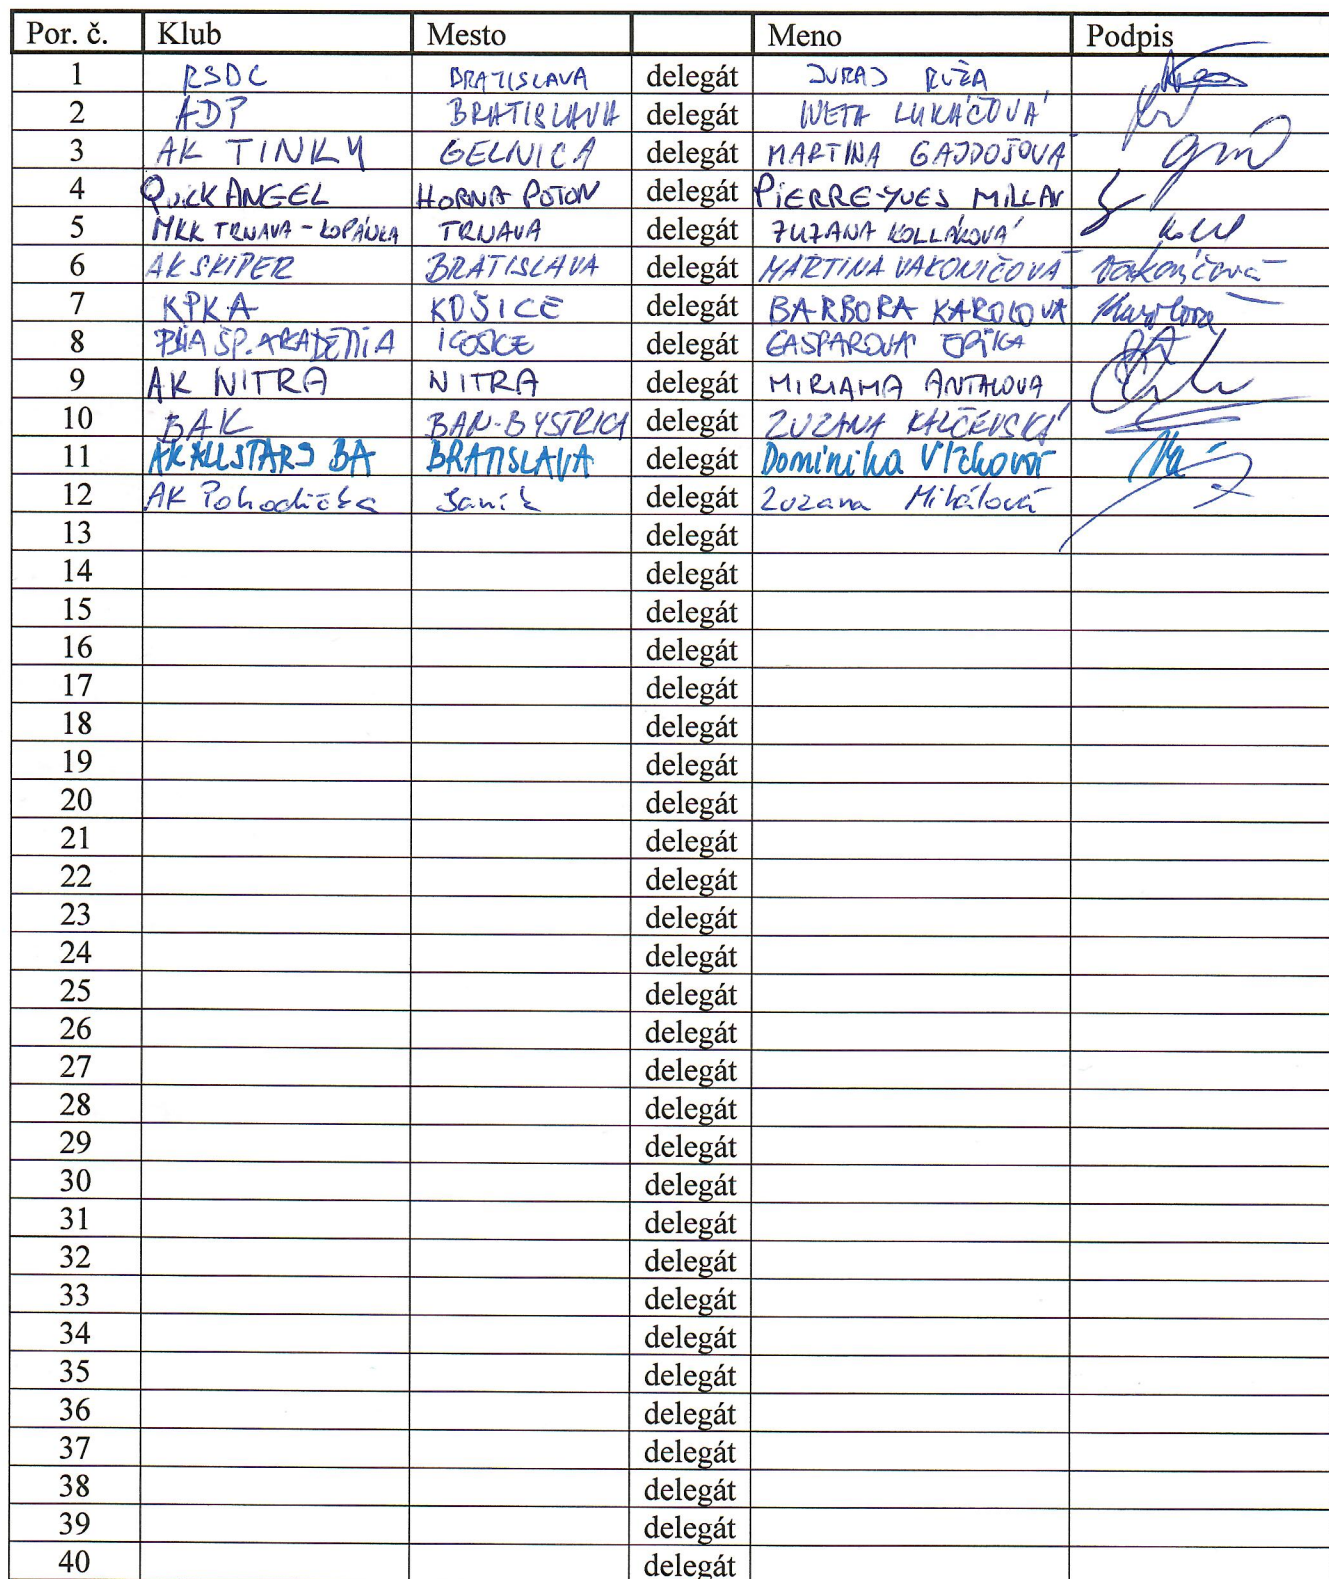 Por. č. Klub Mesto Meno Podpis
1 RSDC BRATISLAVA delegát JURAJ RUŽA
2 BRATISLAVA delegát IVETA LUKÁČOVÁ
3 AK TINKY GELNICA delegát MARTINA GAJDOŠOVÁ
4 QUICK ANGEL HORNA POTON delegát PIERRE-YVES MILLAN
5 MKK TRNAVA - KOPÁNKA TRNAVA delegát ZUZANA KOLLÁROVÁ
6 AK SKIPER BRATISLAVA delegát MARTINA VAKONIČOVÁ Vakoničová
7 KPKA KOŠICE delegát BARBORA KAROLOVÁ
8 ŠP. AKADÉMIA KOŠICE delegát GASPAROVA ERIKA
9 AK NITRA NITRA delegát MIRIAMA ANTALOVA
10 BAK BAN-BYSTRICA delegát ZUZANA KALČEVSKÁ
11 AK ALLSTARS BA BRATISLAVA delegát Dominika Vlčková
12 AK Pohodička delegát Zuzana Mihálová
13 delegát
14 delegát
15 delegát
16 delegát
17 delegát
18 delegát
19 delegát
20 delegát
21 delegát
22 delegát
23 delegát
24 delegát
25 delegát
26 delegát
27 delegát
28 delegát
29 delegát
30 delegát
31 delegát
32 delegát
33 delegát
34 delegát
35 delegát
36 delegát
37 delegát
38 delegát
39 delegát
40 delegát